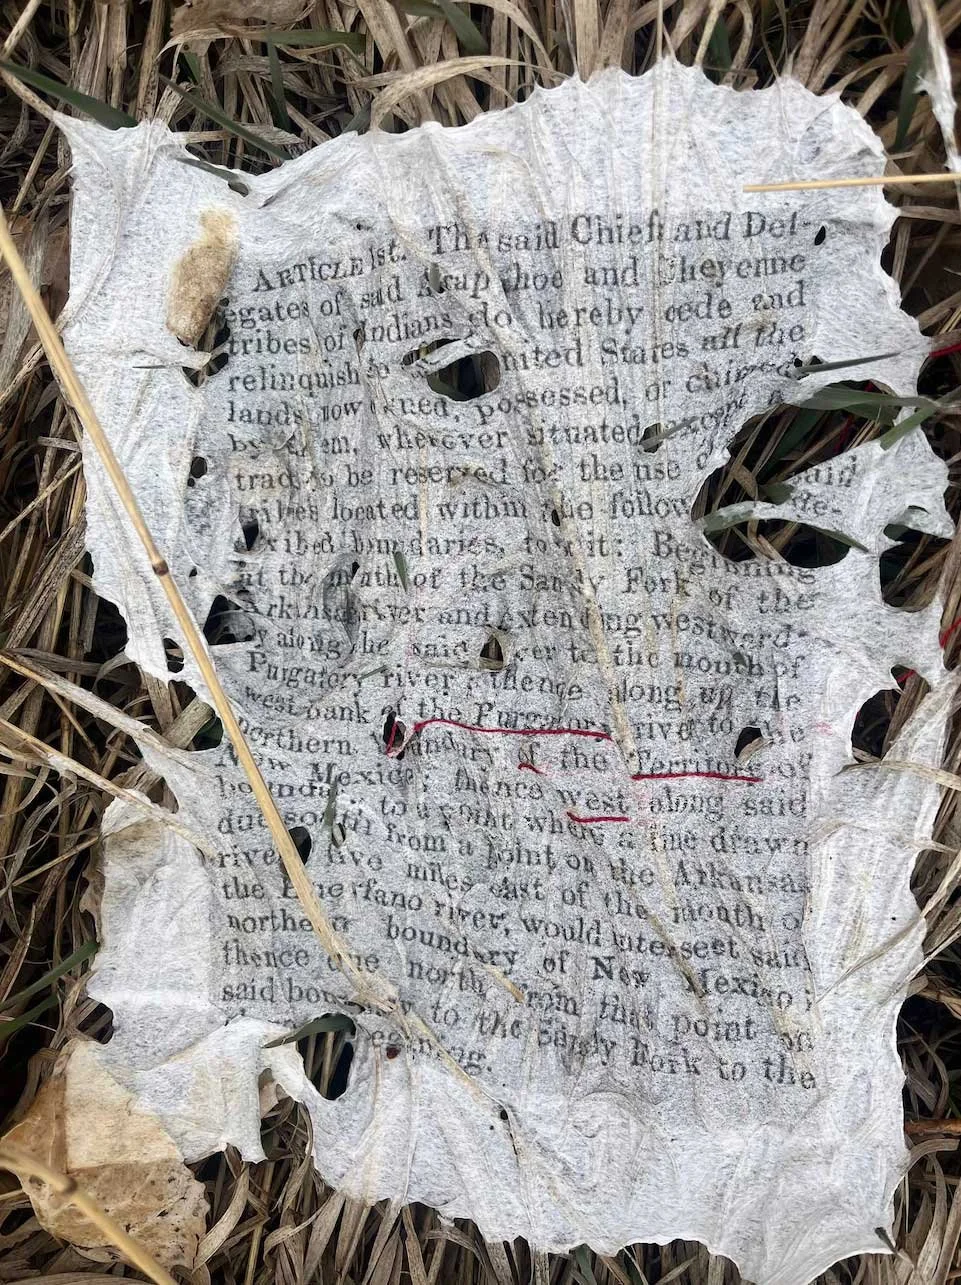 ARTICLE 1st. The said Chiefs and Del-
egates of said Arapahoe and Cheyenne
tribes of Indians do hereby cede and
relinquish to United States all the
lands now owned, possessed, or claimed
by them, wherever situated, except a
tract to be reserved for the use said
tribes located within the follow de-
scribed boundaries, to wit: Beginning
at the mouth of the Sandy Fork of the
Arkansas river and extending westward-
ly along the said river to the mouth of
Purgatory river; thence along up the
west bank of the Purgatory river to the
northern boundary of the Territory of
New Mexico; thence west along said
boundary to a point where a line drawn
due south from a point on the Arkansas
river five miles east of the mouth of
the Huerfano river, would intersect said
northern boundary of New Mexico;
thence due north from that point on
said boundary to the Sandy Fork to the
beginning.